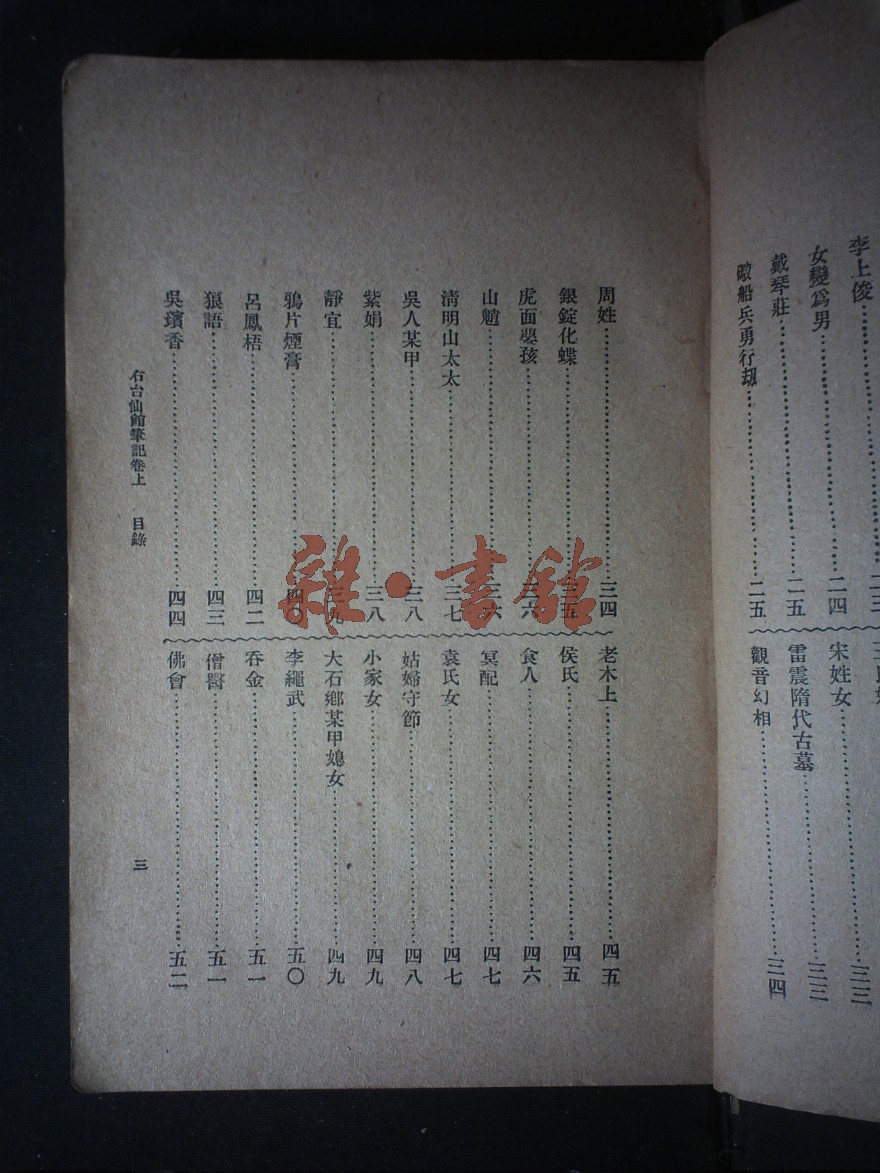 李上俊……二三
女變爲男……二四
戴琴莊……二五
礮船兵勇行刼……二五
宋姓女……三三
雷震隋代古墓……三三
觀音幻相……三四
周姓……三四
銀錠化蝶……三五
虎面嬰孩……三六
山魈……三六
清明山太太……三七
吳人某甲……三八
紫娟……三八
靜宜……三九
鴉片煙膏……四〇
呂鳳梧……四二
狼語……四三
吳璸香……四四
老木上……四五
侯氏……四五
食人……四六
冥配……四七
袁氏女……四七
姑婦守節……四八
小家女……四九
大石鄉某甲媳女……四九
李繩武……五〇
吞金……五一
僧醫……五一
佛會……五二
右台仙館筆記卷上 目錄
三
雜·書館